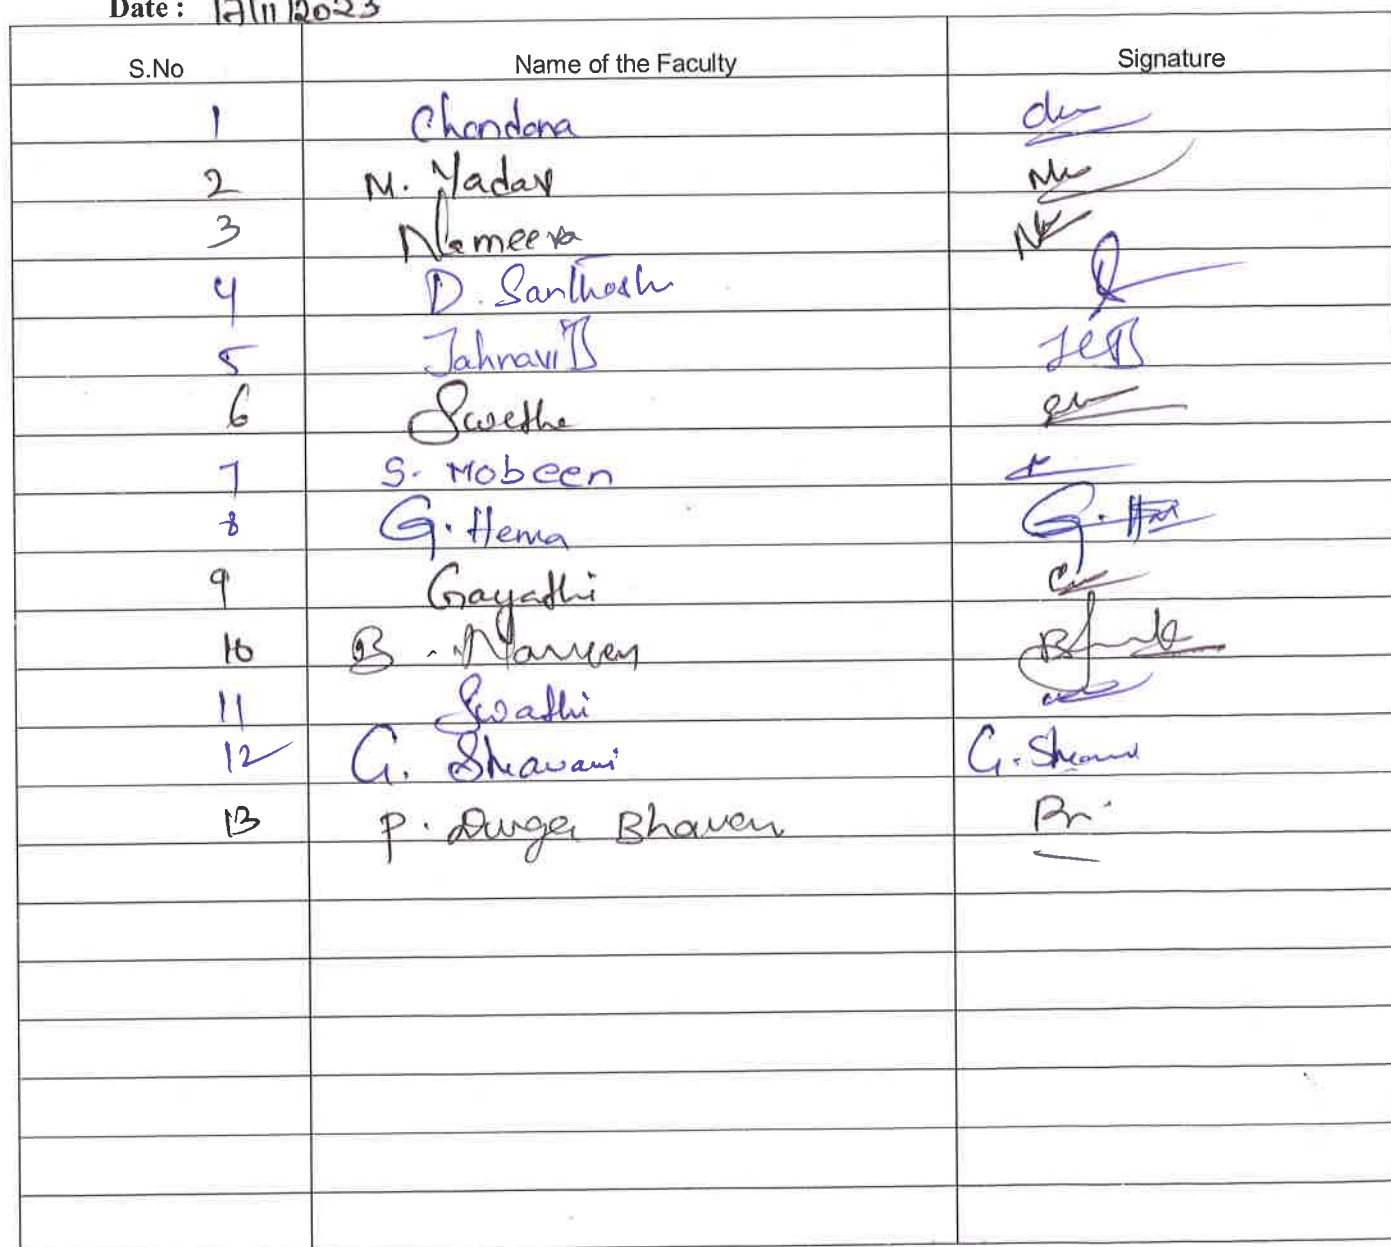 Date : 17/11/2023
S.No Name of the Faculty Signature
1 Chandana
2 M. Yadav
3 Nameera
4 D. Santhosh
5 Jahnavi B
6 Swetha
7 S. Mobeen
8 G. Hema G. Hm
9 Gayathi
10 B. Naveen
11 Swathi
12 G. Shravani
13 P. Durga Bhavan